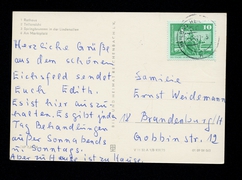 Herzliche Grüße
aus dem schönen
Eichsfeld sendet
Euch Edith.
Es ist hier auszu-
halten. Es gibt jede
Tag Behandlungen
außer Sonnabends
u. Sonntags.
Aber zu Hause ist zu Hause.
10
Familie
Ernst Weidemann
Brandenburg/H
Gobbinstr. 12